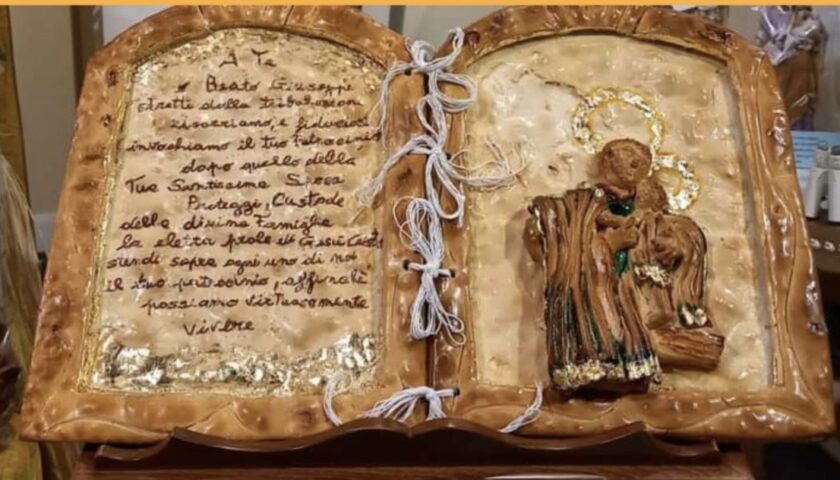 A Te
Beato Giuseppe
stretti dalla tribolazione
ricorriamo, e fiduciosi
invochiamo il tuo Patrocinio
dopo quello della
Tua Santissima Sposa
Proteggi, Custode
della divina Famiglia
la eletta prole di Gesù Cristo
stendi sopra ogni uno di noi
il tuo patrocinio, affinché
possiamo virtuosamente
vivere